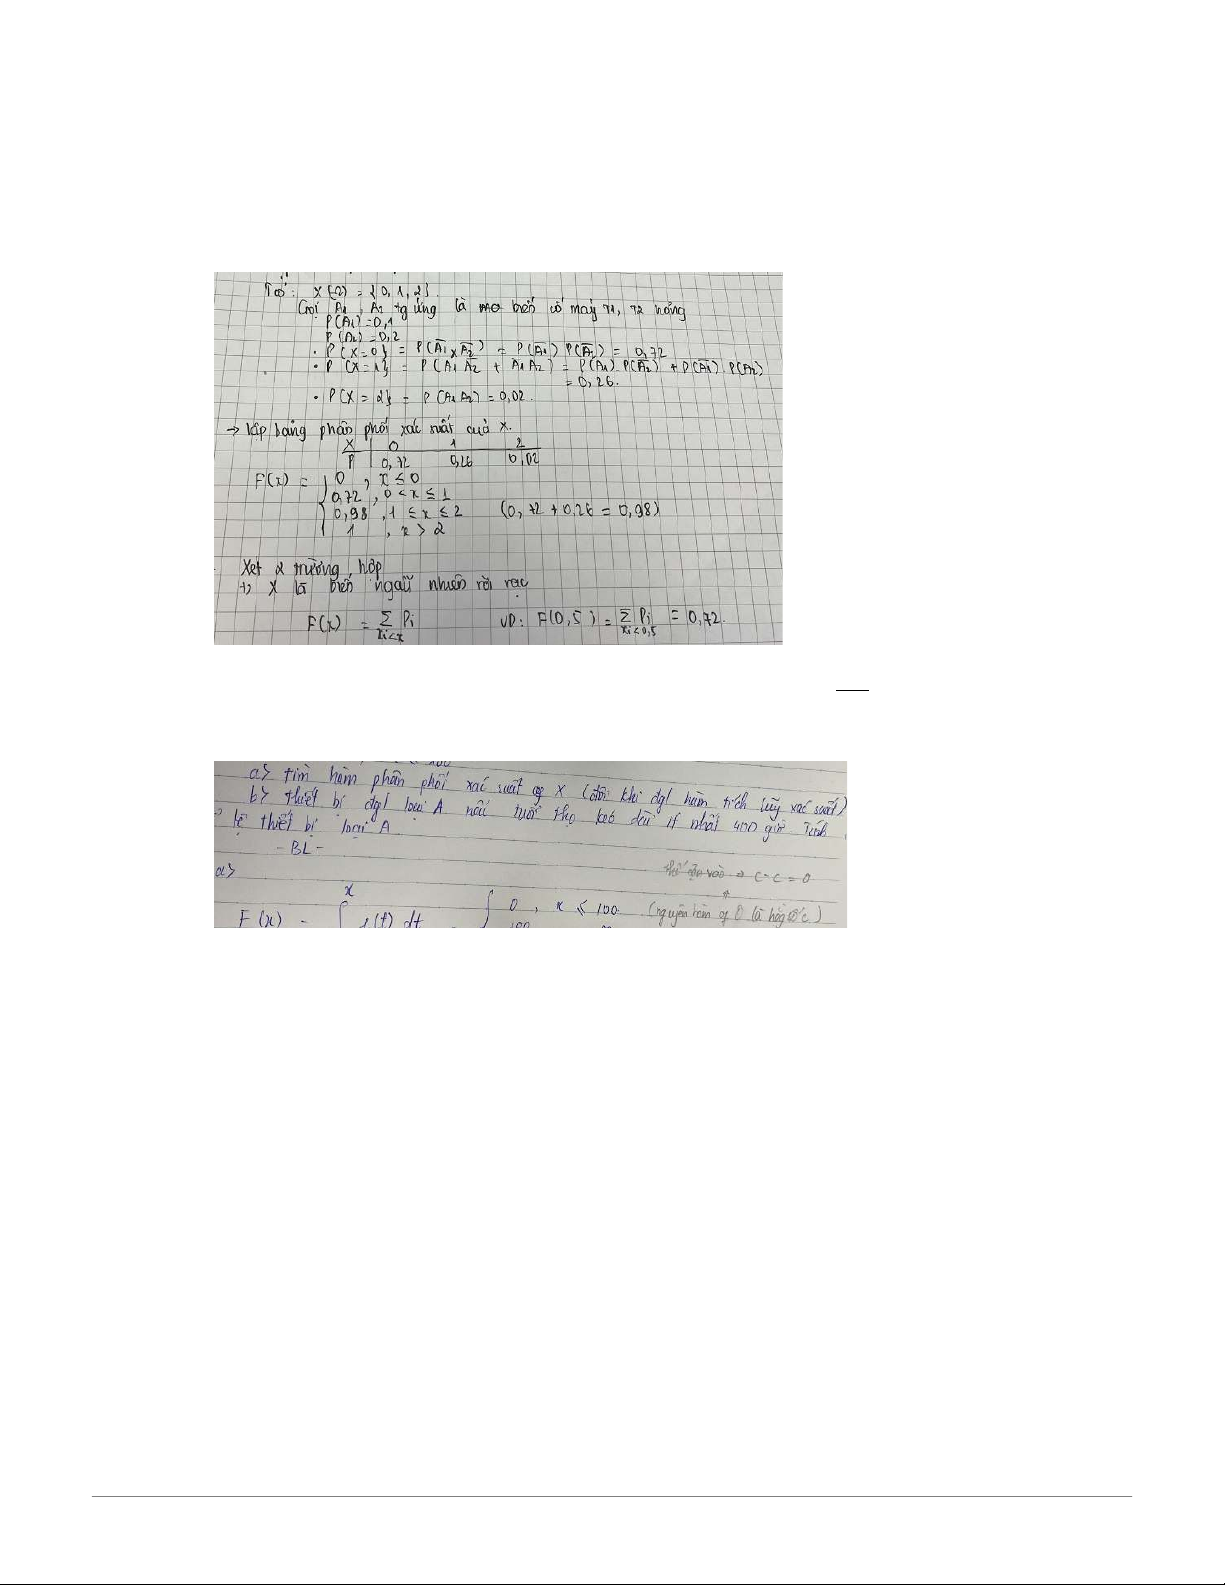 Ta có: X(Ω) = {0, 1, 2}.
Gọi A1, A2 tg ứng là biến cố máy t1, t2 hỏng
P(A1) = 0,1
P(A2) = 0,2
• P{X=0} = P(A̅1 × A̅2) = P(A̅1) P(A̅2) = 0,72
• P{X=1} = P(A1 A̅2 + A̅1 A2) = P(A1) P(A̅2) + P(A̅1) . P(A2)
= 0,26.
• P{X=2} = P(A1 A2) = 0,02.
→ lập bảng phân phối xác suất của X.
X | 0 1 2
P | 0,72 0,26 0,02
F(x) = { 0 , x ≤ 0
0,72 , 0 < x ≤ 1
0,98 , 1 ≤ x ≤ 2 (0,72 + 0,26 = 0,98)
1 , x > 2
Xét 2 trường hợp
1, X là biến ngẫu nhiên rời rạc
F(x) = Σ Pi VD: F(0,5) = Σ Pi = 0,72.
xi<x xi<0,5
a> tìm hàm phân phối xác suất of X (đôi khi đgl hàm tích lũy xác suất)
b> thiết bị đgl loại A nếu tuổi thọ kéo dài ít nhất 400 giờ. Tính
lệ thiết bị loại A
- BL -
a> thế cận vào ⇒ C - C = 0
x
F(x) = ∫ f(t) dt = { 0 , x ≤ 100 (nguyên hàm of 0 là hằng số C)